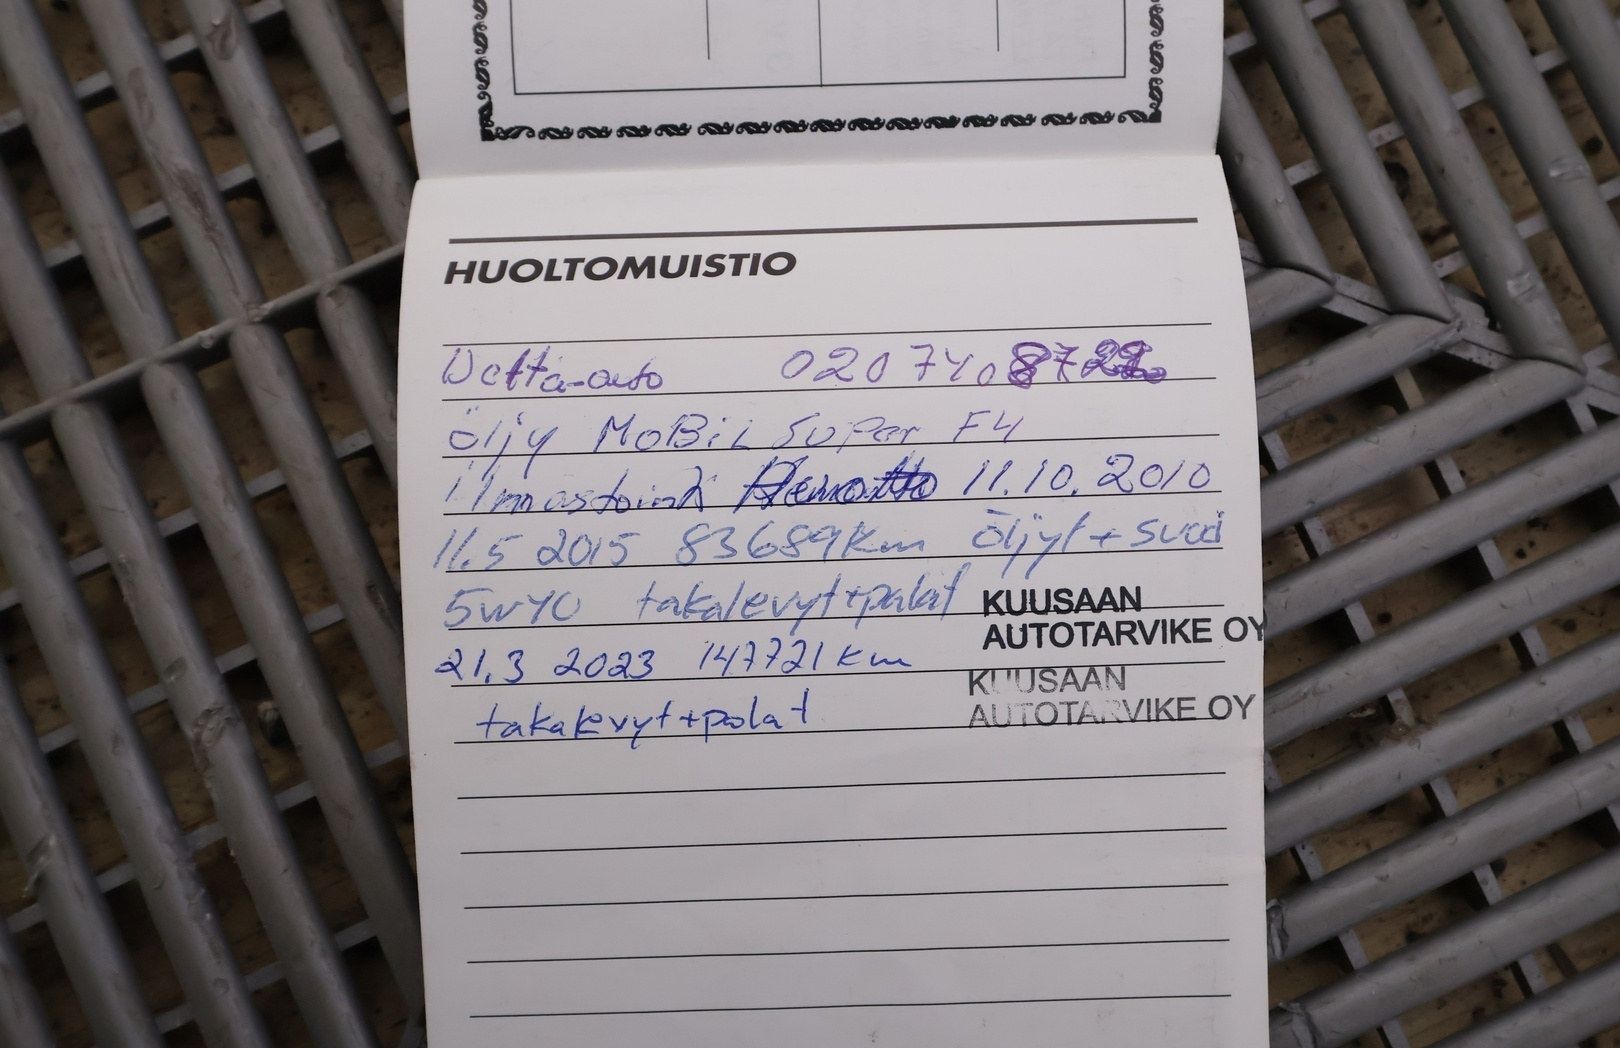 HUOLTOMUISTIO
Detta-auto 020 740
öljy MoBiL Super F4
Ilmastointi 11.10.2010
11.5 2015 83689 km öljyt + suod
5w40 takalevyt + palat
KUUSAAN
AUTOTARVIKE OY
21.3 2023 147721 km
KUUSAAN
AUTOTARVIKE OY
takalevyt + palat